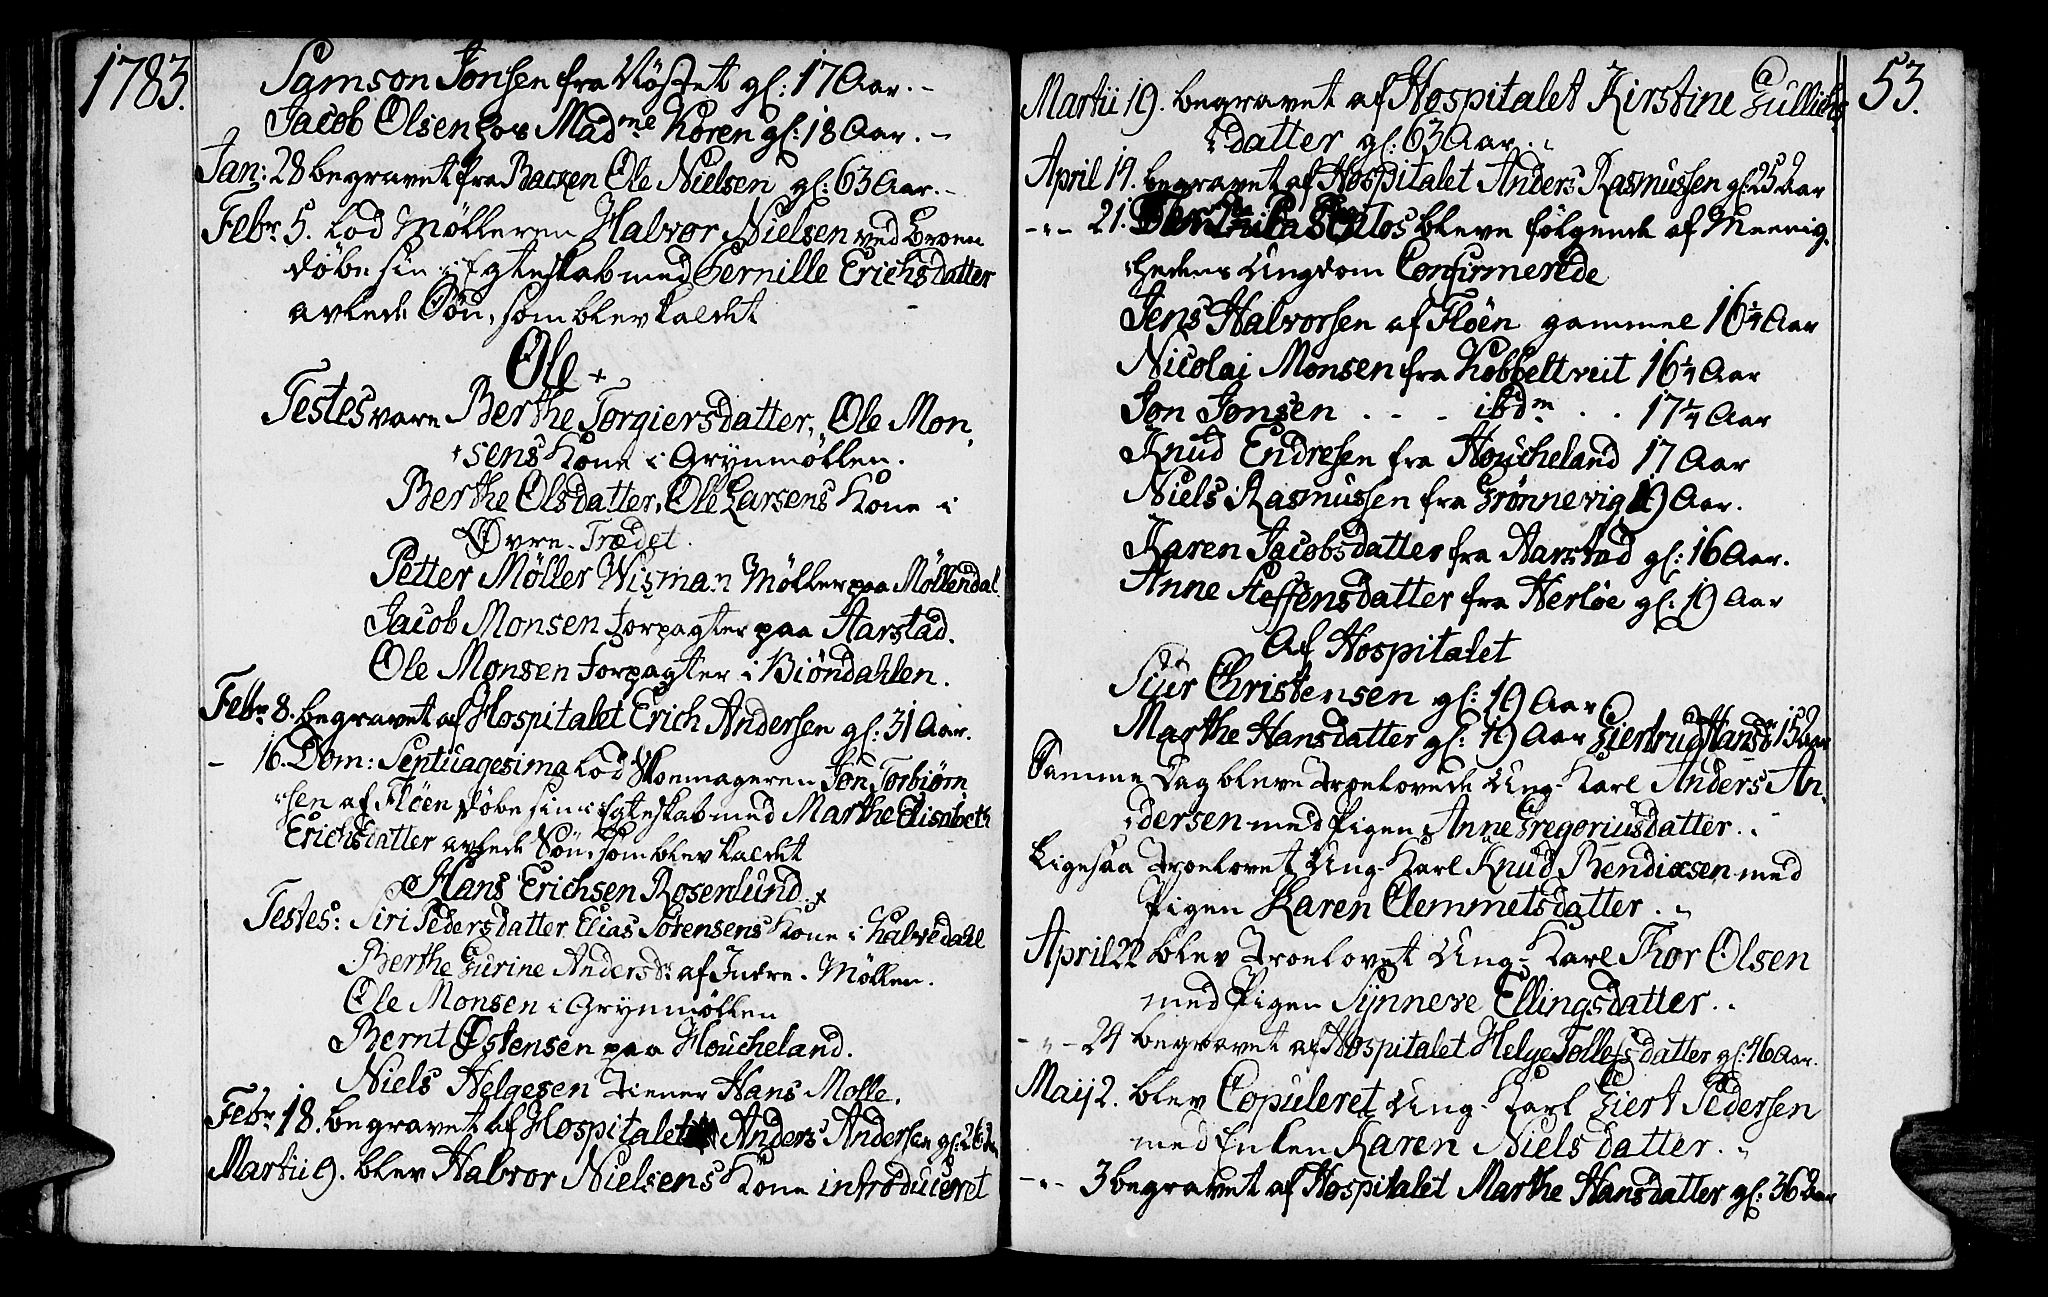 1783.
Samson Jonsen fra Nöstet gl: 17 Aar. -
Jacob Olsen hos Mad<sup>me</sup> Koren gl: 18 Aar. -
Jan: 28 begravet fra Backen Ole Nielsen gl: 63 Aar. -
Febr 5. Lod Mölleren Halvor Nielsen ved Broen
döbe sin i Egteskab med Pernille Erichsdatter
avlede Sön, som blev kaldet
Ole +
Testes vare Berthe Torgiersdatter, Ole Mon,
sens Kone i Grynmöllen.
Berthe Olsdatter, Ole Larsens Kone i
Øvre-Trædet.
Petter Möller Wisman Möller paa Möllendal.
Jacob Monsen Forpagter paa Aarstad.
Ole Monsen Forpagter i Biöndahlen.
Febr 8. begravet af Hospitalet Erich Andersen gl: 31 Aar.
- 16. Dom: Septuagesima Lod Skoemageren Jon Torbiörn
sen af Flöen döbe sin i Egteskab med Marthe Elisabeth
Erichsdatter avlede Sön, som blev kaldet
Hans Erichsen Rosenlund. +
Testes: Siri Pedersdatter Elias Sörensens Kone i Kalvedahl
Berthe Gurine Andersdr af Indre-Möllen.
Ole Monsen i Grynmöllen
Bernt Östensen paa Houcheland.
Niels Helgesen tiener Hans Molle.
Febr 18. begravet af Hospitalet Anders Andersen gl: 26 Aar
Martii 9. blev Halvor Nielsens Kone introduceret
53.
Martii 19. begravet af Hospitalet Kirstine Gullichs
datter gl: 63 Aar.
April 14. begravet af Hospitalet Anders Rasmussen gl: 25 Aar
- " - 21. bleve fölgende af Meenig,
hedens Ungdom Confirmerede
Jens Halvorsen af Flöen gammel 16 1/4 Aar
Nicolai Monsen fra Kobbeltveit 16 1/4 Aar
Jon Jonsen . . - ibdm . . 17 1/4 Aar
Knud Endresen fra Houcheland 17 Aar
Niels Rasmussen fra Grönnevig 19 Aar.
Karen Jacobsdatter fra Aarstad gl: 16 Aar.
Anne Steffensdatter fra Herlöe gl: 19 Aar
Af Hospitalet
Siur Christensen gl: 19 Aar
Marthe Hansdatter gl: 19 Aar Giertrud Hansdr 15 Aar
Samme Dag bleve Troelovede Ung-Karl Anders An,
dersen med Pigen Anne Gregoriusdatter.
Ligesaa Troelovet Ung-Karl Knud Bendixsen med
Pigen Karen Clemmetsdatter.
April 22 blev Troelovet Ung-Karl Thor Olsen
med Pigen Synneve Ellingsdatter.
- " - 24 begravet af Hospitalet Helge Tollefsdatter gl: 46 Aar.
Maij 2. blev Copuleret Ung-Karl Giert Pedersen
med Enken Karen Nielsdatter.
- " - 3 begravet af Hospitalet Marthe Hansdatter gl: 36 Aar